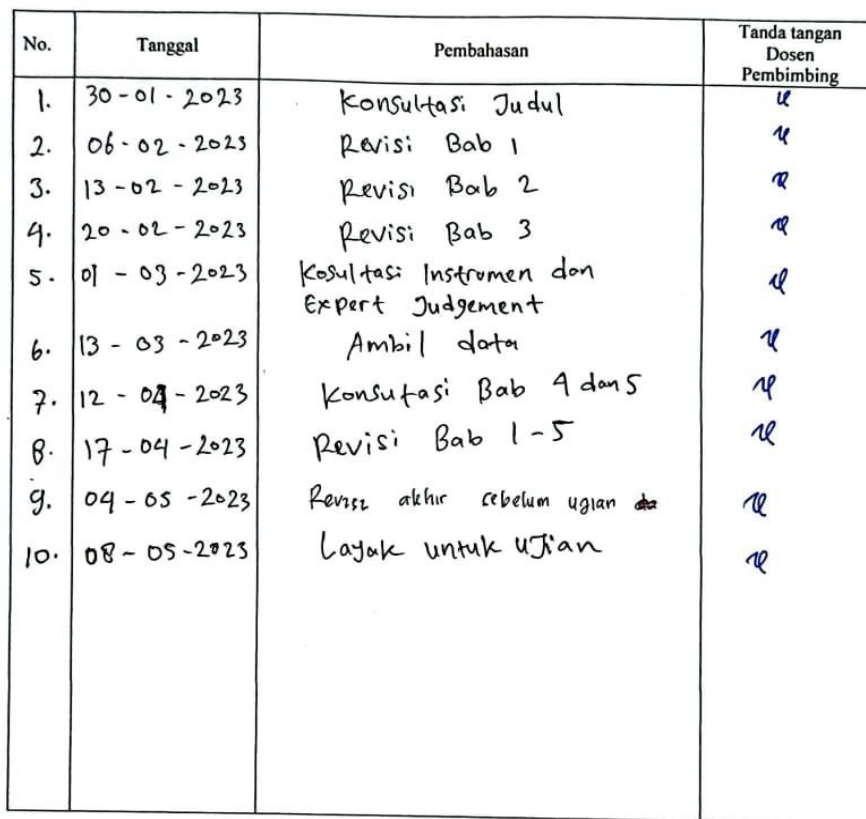 No. Tanggal Pembahasan Tanda tangan
Dosen
Pembimbing
1. 30-01-2023 Konsultasi Judul
2. 06-02-2023 Revisi Bab 1
3. 13-02-2023 Revisi Bab 2
4. 20-02-2023 Revisi Bab 3
5. 01-03-2023 Kosultasi Instrumen dan
Expert Judgement
6. 13-03-2023 Ambil data
7. 12-04-2023 Konsutasi Bab 4 dan 5
8. 17-04-2023 Revisi Bab 1-5
9. 04-05-2023 Revisi akhir sebelum ugian
10. 08-05-2023 Layak untuk ujian